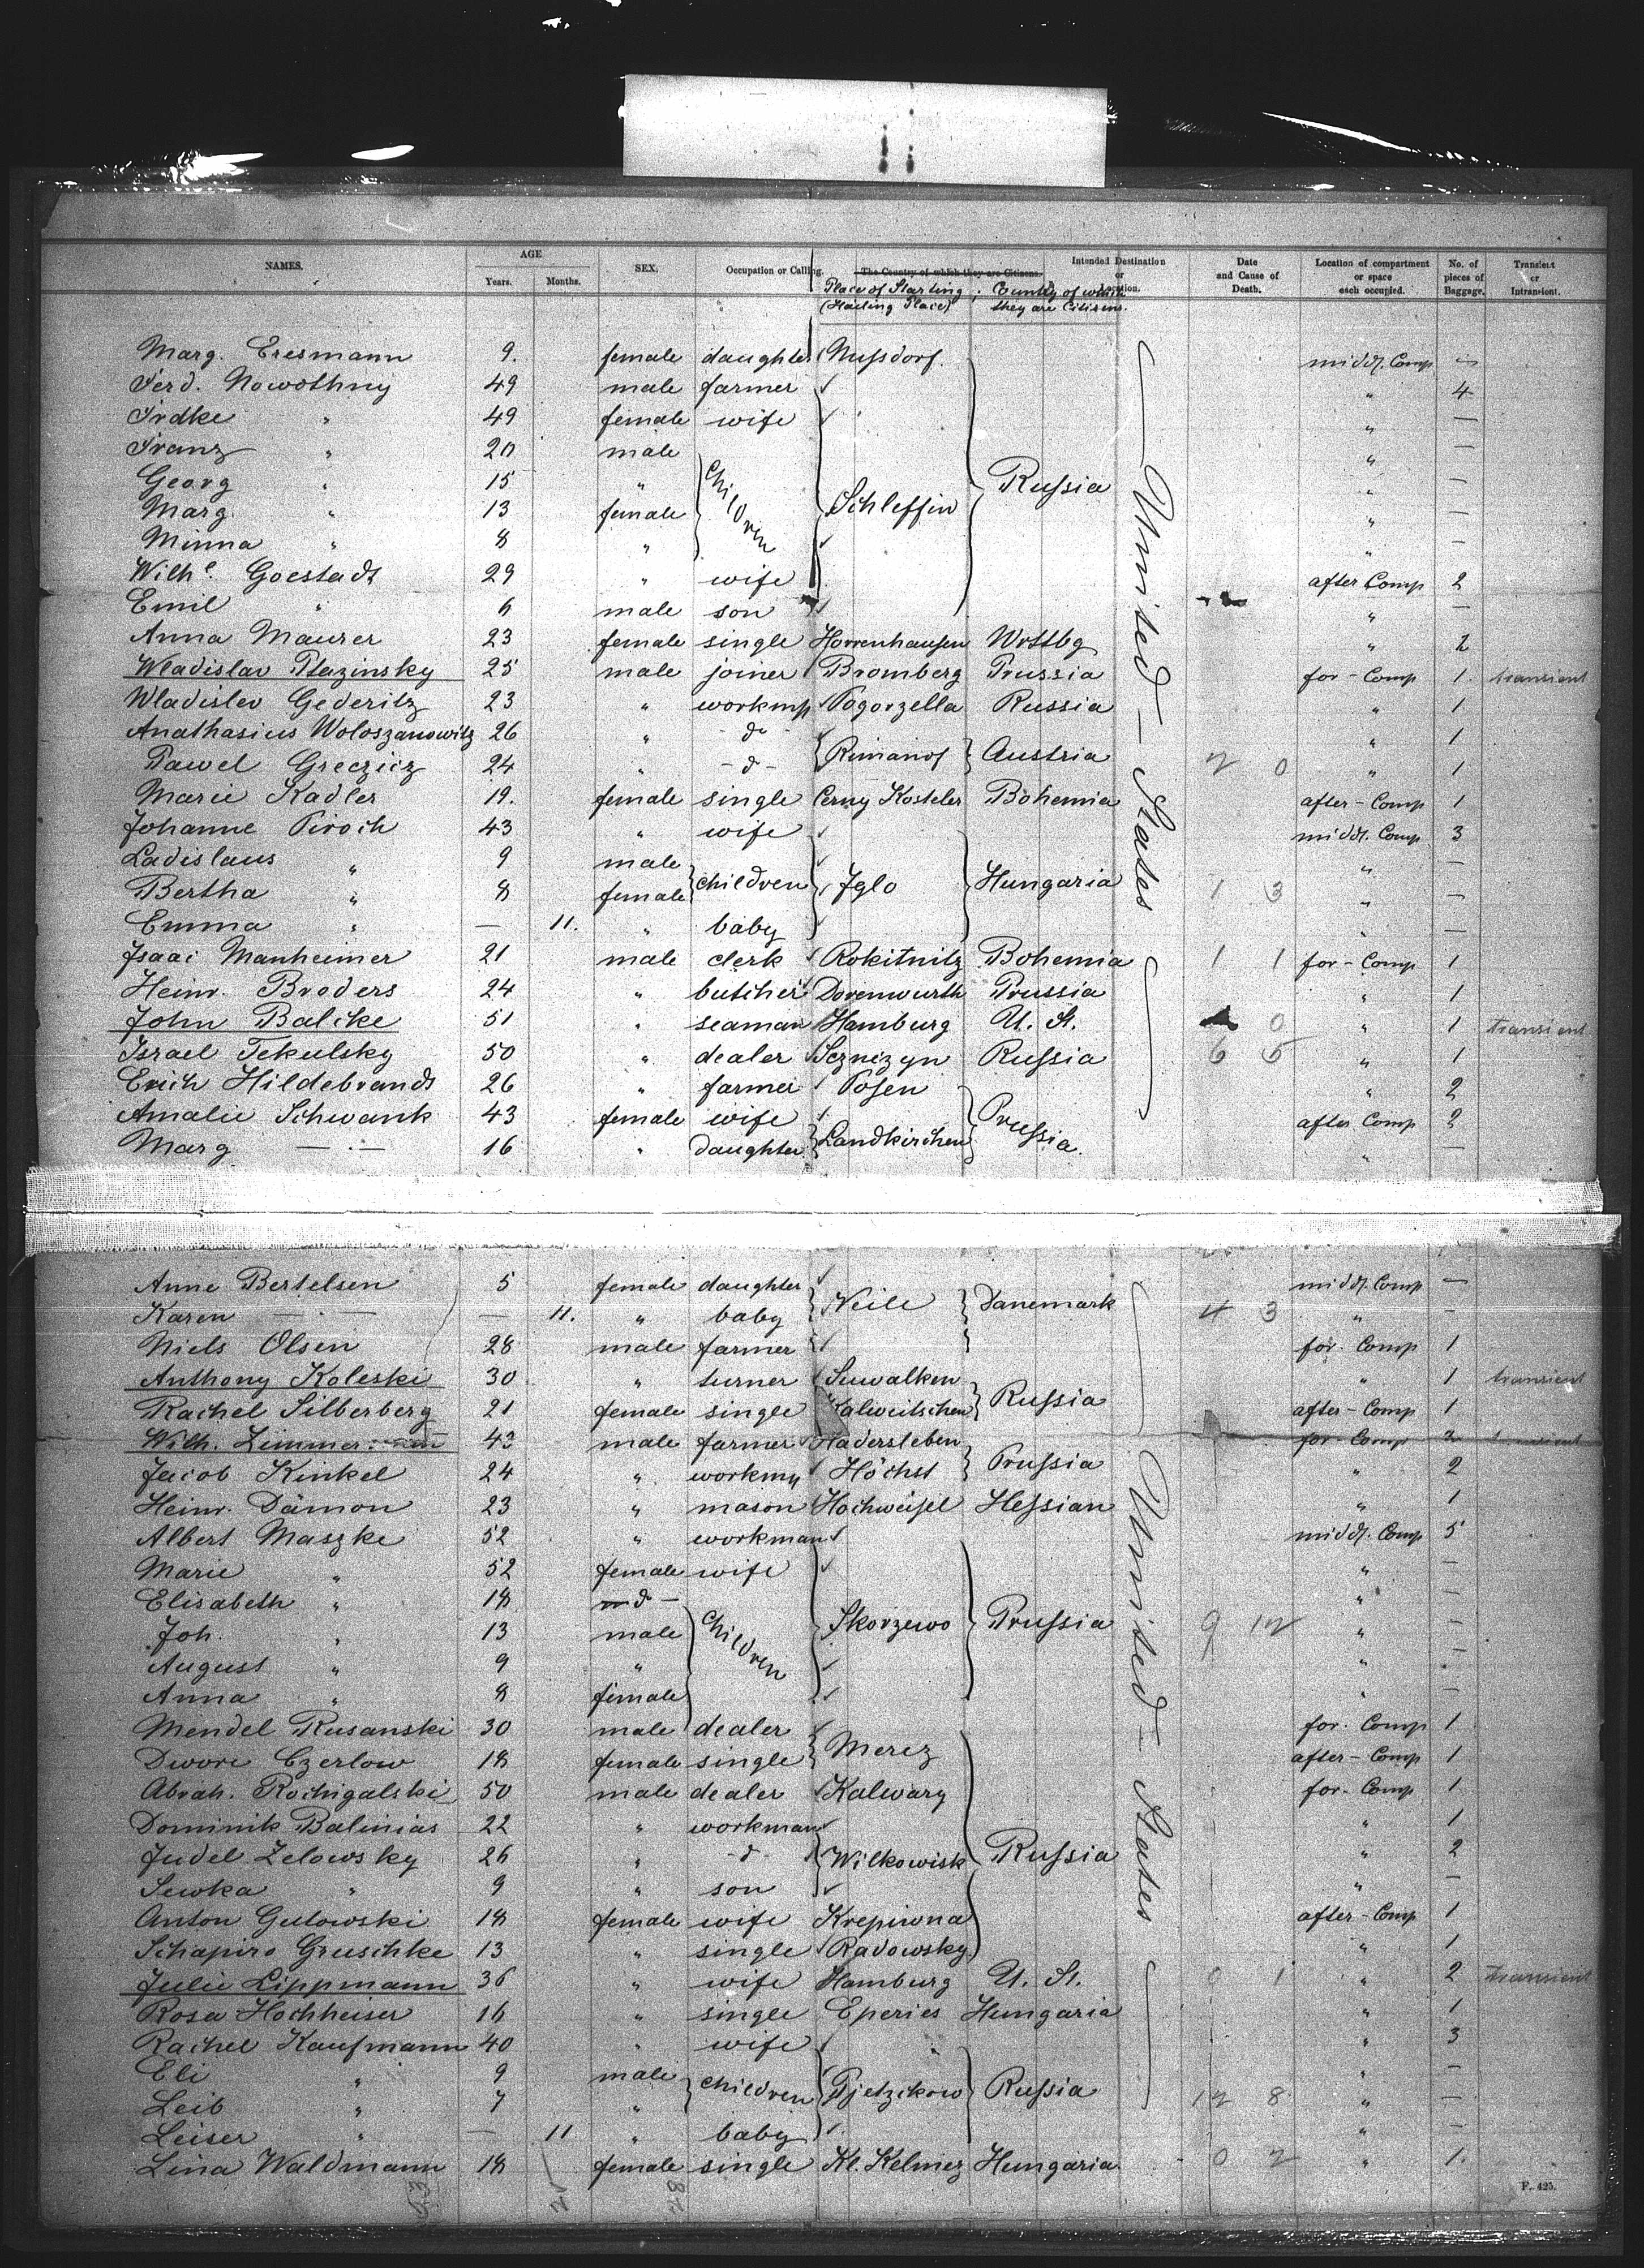 NAMES. AGE SEX. Occupation or Calling. The Country of which they are Citizens. Intended Destination or Location. Date and Cause of Death. Location of compartment or space each occupied. No. of pieces of Baggage. Transient or Intransient.
Years. Months. Place of Starting (Starting Place) ; Country of which they are Citizens.
Marg. Eresmann 9. female daughter Nußdorf. middl. Comp —
Ferd. Nowothny 49 male farmer " 4
Frdke " 49 female wife " —
Franz " 20 male " —
Georg " 15 " Children Schleffin Russia " —
Marg. " 13 female " —
Minna " 8 " " —
Wilh. Goestadt 29 " wife after Comp 2
Emil " 6 male son " —
Anna Maurer 23 female single Horrenhausen Wrttbg " 2
Wladislav Ptazinsky 25 male joiner Bromberg Prussia for - Comp 1 transient
Wladislev Gederitz 23 " workmn Pogorzella Russia " 1
Anathasius Woloszanowitz 26 " do " 1
Pawel Greczicz 24 " - do - Rimanof Austria 2 0 " 1
Marie Kadler 19. female single Cerny Kosteler Bohemia after - Comp 1
Johanne Piroch 43 " wife middl. Comp 3
Ladislaus " 9 male " —
Bertha " 8 female children Iglo Hungaria 1 3 " —
Emma " — 11. " baby " —
Isaai Manheimer 21 male clerk Rokitnitz Bohemia 1 1 for - Comp 1
Heinr. Broders 24 " butcher Dorenwurth Prussia " 1
John Balcke 51 " seaman Hamburg U. St. 0 " 1 transient
Israel Tekulsky 50 " dealer Seznizyn Russia 6 5 " 1
Erich Hildebrandt 26 " farmer Posen " 2
Amalie Schwank 43 female wife Prussia after Comp 2
Marg — " — 16 " daughter Landkirchen " —
United - States
Anne Bertelsen 5 female daughter middl. Comp —
Karen — " — — 11. " baby Veile Danemark 4 3 " —
Niels Olsen 28 male farmer for. Comp 1
Anthony Koleski 30 " turner Suwalken " 1 transient
Rachel Silberberg 21 female single Kalweitschen Russia after - Comp 1
Wilh. Zimmermann 43 male farmer Hadersleben for - Comp 2 transient
Jacob Kinkel 24 " workmn Höchst Prussia " 2
Heinr. Dämon 23 " mason Hochweisel Hessian " 1
Albert Maszke 52 " workman middl. Comp 5
Marie " 52 female wife " —
Elisabeth " 18 - do - "
Joh. " 13 male Children Skorzewo Prussia 9 12 " —
August " 9 " " —
Anna " 8 female " —
Mendel Rusanski 30 male dealer for. Comp 1
Dwore Czerlow 18 female single Merez after - Comp 1
Abrah. Rochigalski 50 male dealer Kalwary for - Comp 1
Dominik Balinias 22 " workman " 1
Judel Zelowsky 26 " - do - Wilkowisk Russia " 2
Sewka " 9 " son " —
Anton Gulowski 18 female wife Krepiwna after - Comp 1
Schapiro Gruschke 13 " single Radowsky " 1
Julie Lippmann 36 " wife Hamburg U. St. 0 1 " 2 transient
Rosa Hochheiser 16 " single Eperies Hungaria " 1
Rachel Kaufmann 40 " wife " 3
Eli " 9 male " —
Leib " 7 " children Pjetzikow Russia 12 8 " —
Leiser " — 11 " baby " —
Lina Waldmann 18 female single Kl. Kelmez Hungaria 0 2 " 1.
United - States
F. 425.